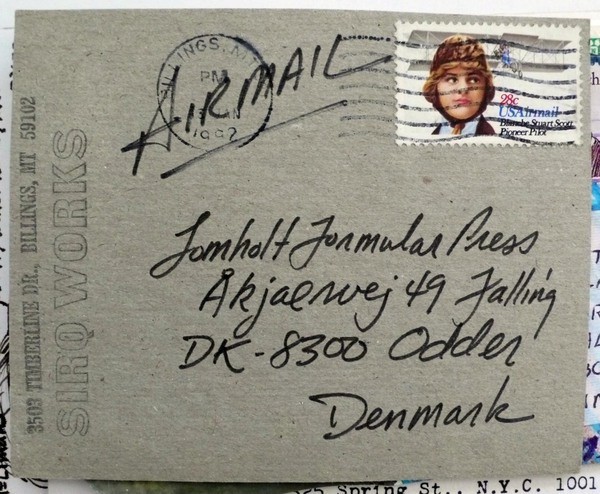 BILLINGS, MT
PM
JAN
1982
AIRMAIL
28c
USAirmail
Blanche Stuart Scott
Pioneer Pilot
3503 TIMBERLINE DR., BILLINGS, MT 59102
SIRQ WORKS
Lomholt Formular Press
Åkjaervej 49 Falling
DK-8300 Odder
Denmark
Spring St., N.Y.C. 1001